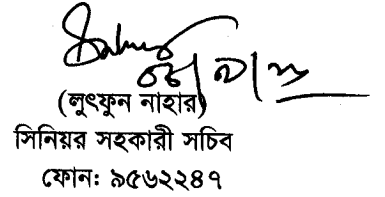 (লুৎফুন নাহার)
সিনিয়র সহকারী সচিব
ফোন: ৯৫6২২৪৭